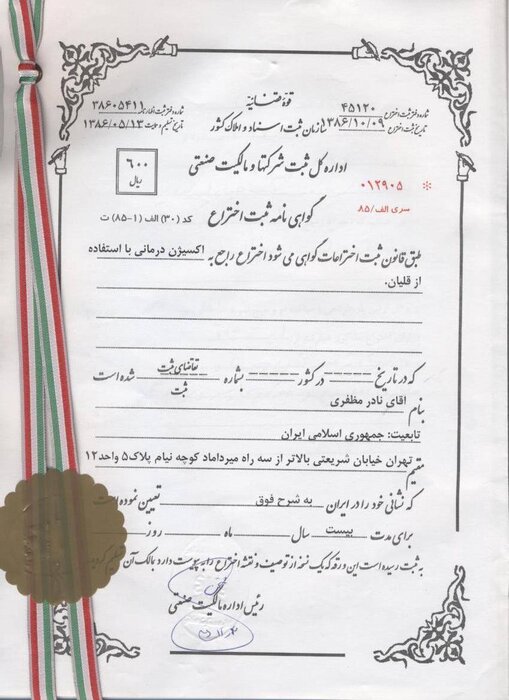 قوهٔ قضائیه
شماره دفتر ثبت اختراع ۴۵۱۲۰
شماره دفتر ثبت اظهارنامه ۳۸۶۰۵۴۱۱
سازمان ثبت اسناد و املاک کشور
تاریخ ثبت اختراع ۱۳۸۶/۱۰/۰۹
تاریخ تسلیم ۱۳۸۶/۰۵/۱۳
اداره کل ثبت شرکتها و مالکیت صنعتی
۶۰۰
ریال
* ۰۱۲۹۰۵
سری الف/۸۵
گواهی نامه ثبت اختراع
کد (۳۰) الف (۱-۸۵) ت
طبق قانون ثبت اختراعات گواهی می شود اختراع راجع به اکسیژن درمانی با استفاده
از قلیان.
که در تاریخ ------ در کشور ------ بشماره ------ تقاضای ثبت
ثبت
شده است
بنام اقای نادر مظفری
تابعیت: جمهوری اسلامی ایران
مقیم تهران خیابان شریعتی بالاتر از سه راه میرداماد کوچه نیام پلاک۵ واحد۱۲
که نشانی خود را در ایران به شرح فوق تعیین نموده است
برای مدت بیست سال ماه روز
به ثبت رسیده است این ورقه که یک نسخه از توصیف و نقشه اختراع را به پیوست دارد بمالک آن تسلیم
رئیس اداره مالکیت صنعتی